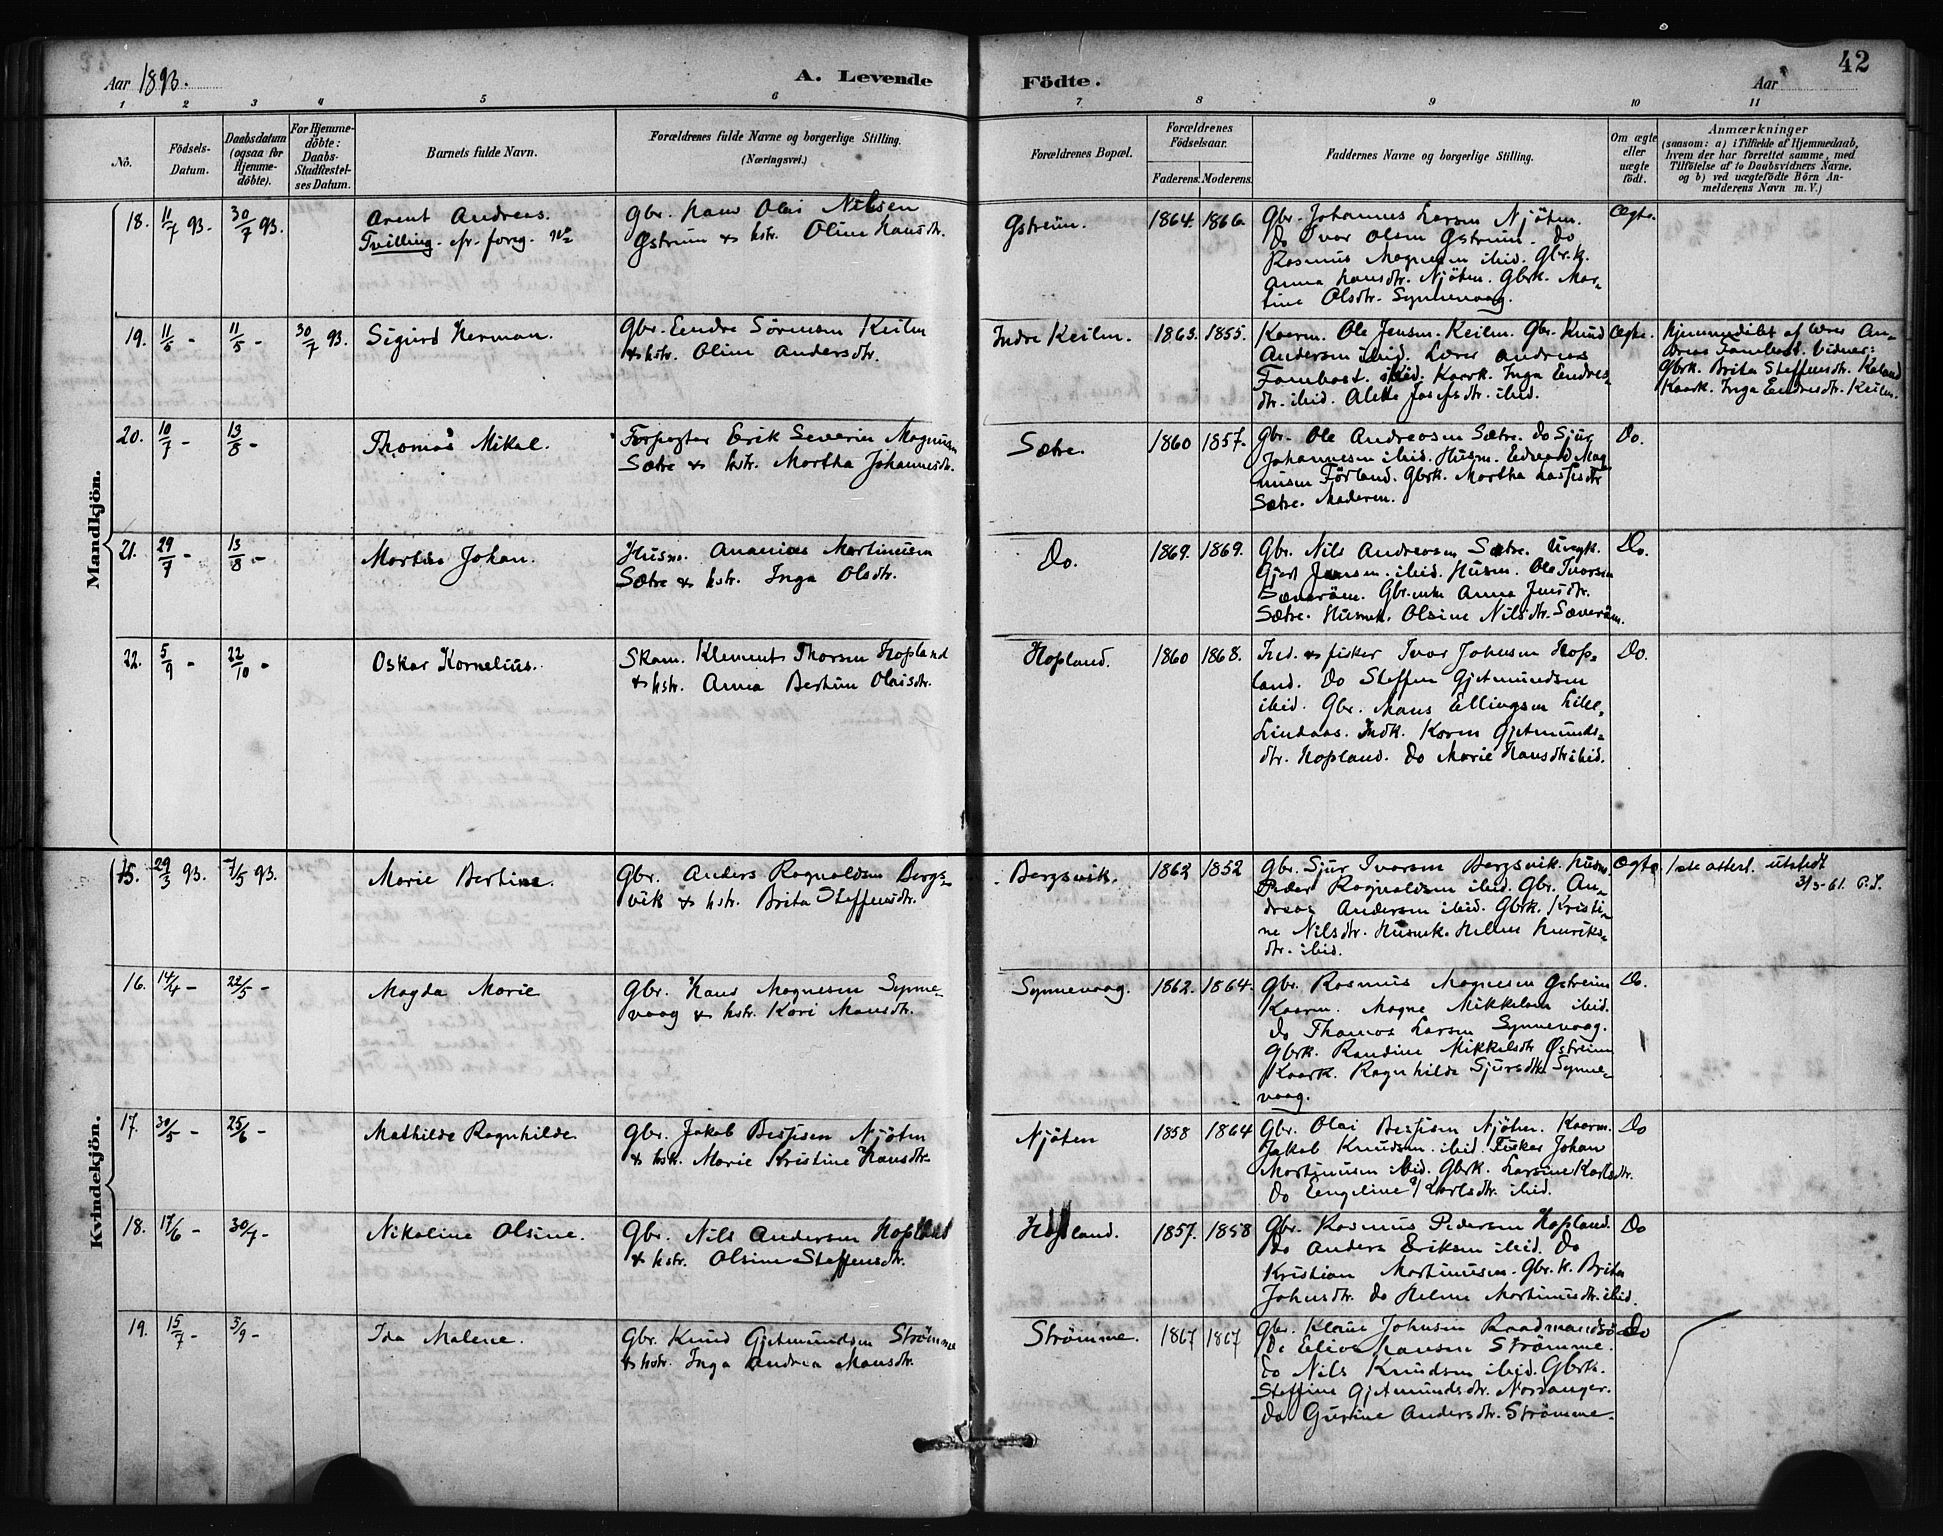 42
Aar 1893.
A. Levende
Födte.
Aar
1 2 3 4 5 6 7 8 9 10 11
Nö.
Födsels-
Datum.
Daabsdatum
(ogsaa for
Hjemme-
döbte).
For Hjemme-
döbte:
Daabs-
Stadfæstel-
ses Datum.
Barnets fulde Navn.
Forældrenes fulde Navne og borgerlige Stilling.
(Næringsvei.)
Forældrenes Bopæl.
Forældrenes
Fødselsaar.
Faderens. Moderens.
Faddernes Navne og borgerlige Stilling.
Om ægte
eller
uægte
födt.
Anmærkninger
(saasom: a) i Tilfælde af Hjemmedaab,
hvem der har forrettet samme, med
Tilföielse af to Daabsvidners Navne,
og b) ved uægtefödte Börn An-
melderens Navn m. V.)
Mandkjön.
18. 11/7 93. 30/7 93.
Arent Andreas.
Tvilling. cfr. foreg. No
Gbr. Hans Olai Nilsen
Østreim & hstr. Oline Hansdtr.
Østreim.
1864. 1866.
Gbr. Johannes Larsen Njöten.
Do Ivar Olsen Østreim. Do
Rasmus Magnesen ibid. Gbr.k.
Anna Hansdtr. Njöten. Gbrk. Mar-
tine Olsdtr. Synnevaag.
Ægte.
19. 11/5 - 11/5 - 30/7 93.
Sigurd Herman.
Gbr. Endre Sörensen Keilen
& hstr. Oline Andersdtr.
Indre Keilen.
1863. 1855.
Kaarm. Ole Jensen. Keilen. Gbr. Knud
Andersen ibid. Lærer Andreas
Fambost. ibid. Kaark. Inga Endres-
dtr. ibid. Alette Josefsdtr. ibid.
Ægte.
Hjemmedöbt af lærer An-
dreas Fambost. Vidner:
Gbrk. Brita Steffensdtr. Keland
Kaark. Inga Endresdtr. Keilen.
20. 10/7 - 13/8 -
Thomas Mikal.
Forpagter Erik Severin Magnussen
Sætre & hstr. Martha Johannesdtr.
Sætre.
1860 1857.
Gbr. Ole Andreasen Sætre. Do Sjur
Johannesen ibid. Husm. Edvard Mag
nusen Förland. Gbrk. Martha Lassesdtr
Sætre. Moderen.
Do.
21. 29/7 - 13/8 -
Martin Johan.
Husm. Ananias Martinusen
Sætre & hstr. Inga Olsdtr.
Do.
1869. 1869.
Gbr. Nils Andreasen Sætre. Ungk.
Gjert Jensen. ibid. Husm. Ole Ivarsen
Sæveröen. Gbr.enke Anna Jensdtr.
Sætre. Husmk. Olsine Nilsdtr. Sæveröen.
Do.
22. 5/9 - 22/10 -
Oskar Kornelius.
Skom. Klement Thorsen Hopland
& hstr. Anna Bertine Olaisdtr.
Hopland.
1860 1868.
Ind. & fisker Ivar Johnsen Hop-
land. Do Steffen Gjetmundsen
ibid. Gbr. Mons Ellingsen Lille-
Lindaas. Indk. Karen Gjetmunds-
dtr. Hopland. Do Marie Hansdtr ibid.
Do.
Kvindekjön.
15. 29/3 93. 7/5 93.
Marie Bertine.
Gbr. Anders Ragnvaldsen Bergs-
vik & hstr. Brita Steffensdtr.
Bergsvik.
1862 1852
Gbr. Sjur Ivarsen Bergsvik. Husm
Peder Ragnvaldsen ibid. Gbr. An-
dreas Andersen ibid. Gbrk. Kristi-
ne Nilsdtr. Husmk. Helene Henriks-
dtr. ibid.
Ægte
1ste attest. utstedt
3/3-61.
16. 14/4 - 22/5 -
Magda Marie
Gbr. Hans Magnesen Synne-
vaag & hstr. Kari Monsdtr.
Synnevaag.
1862. 1864.
Gbr. Rasmus Magnesen Østreim
Kaarm. Magne Mikkelsen ibid.
Do Thomas Larsen Synnevaag.
Gbrk. Randine Mikkelsdtr Østreim
Kaark. Ragnhilde Sjursdtr Synne-
vaag.
Do.
17. 30/5 - 25/6 -
Mathilde Ragnhilde
Gbr. Jakob Bessesen Njöten
& hstr. Marie Kristine Hansdtr.
Njöten
1858 1864
Gbr. Olai Bessesen Njöten. Kaarm.
Jakob Knudsen. ibid. Fisker Johan
Martinusen ibid. Gbrk. Larsine Karlsdtr.
Do Engeline Karlsdtr. ibid.
Do
18. 17/6 - 30/7 -
Nikoline Olsine.
Gbr. Nils Andersen Hopland
& hstr. Olsine Steffensdtr.
Hopland.
1857. 1858
Gbr. Rasmus Pedersen Hopland.
Do Anders Eriksen ibid. Do
Kristian Martinusen. Gbr.k. Brita
Johnsdtr. Do Helene Martinusdtr. ibid.
Do
19. 15/7 - 3/9 -
Ida Malene.
Gbr. Knud Gjetmundsen Strömme
& hstr. Inga Andrea Monsdtr.
Strömme.
1867 1867
Gbr. Johnsen Raadmandsö
Do Elias Hansen Strömme.
Do Nils Knudsen ibid. Gbrk.
Steffine Gjetmundsdtr. Nordanger.
Do Gurine Andersdtr. Strömme.
Do